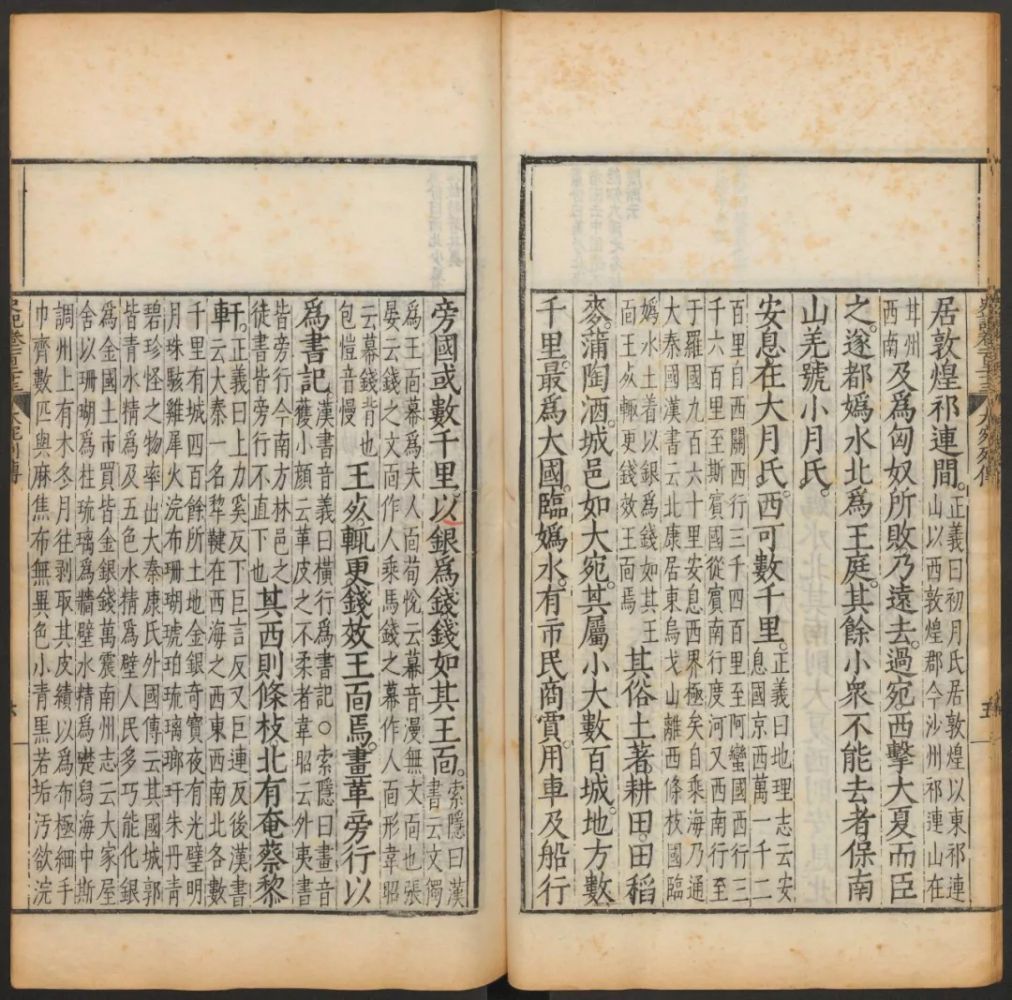 史記卷一百二十三 大宛列傳 五
居敦煌祁連間。正義曰初月氏居敦煌以東祁連
山以西敦煌郡今沙州祁連山在
甘州
西南 及爲匈奴所敗乃遠去。過宛。西擊大夏而臣
之。遂都嬀水北爲王庭。其餘小衆不能去者。保南
山羌號小月氏。
安息。在大月氏。西可數千里。正義曰地理志云安
息國京西萬一千二
百里自西關西行三千四百里至阿蠻國西行三
千六百九里至斯賓國從賓南行度河又西南行至
于羅國九百六十里安息西界極矣自乘海乃通
大秦國漢書云北康居東烏弋山離西條枝國臨
嬀水土著以銀爲錢如其王
面王死輒更錢效王面焉 其俗土著。耕田。田稻
麥。蒲陶酒。城邑如大宛。其屬小大數百城。地方數
千里。最爲大國。臨嬀水。有市民商賈。用車及船行
旁國或數千里。以銀爲錢錢如其王面。索隱曰漢
書云文獨
爲王面幕爲夫人面荀悅云幕音漫無文面也張
晏云錢之文面作人乘馬錢之幕作人面形韋昭
云幕錢背也
包愷音慢 王死。輒更錢效王面焉。畫革。旁行以
爲書記 漢書音義曰橫行爲書記○索隱曰畫音
獲小顏云革皮之不柔者韋昭云外夷書
皆旁行今南方林邑之
徒書皆旁行不直下也 其西則條枝北有奄蔡黎
軒。正義曰上力奚反下巨言反又巨連反後漢書
云大秦一名犂鞬在西海之西東西南北各數
千里有城四百餘所土地金銀奇寶夜有光璧明
月珠駭雞犀火浣布珊瑚琥珀琉璃瑯玕朱丹青
碧珍怪之物率出大秦康氏外國傳云其國城郭
皆青水精爲及五色水精爲壁人民多巧能化銀
爲金國土市買皆金銀錢萬震南州志云大家屋
舍以珊瑚爲柱琉璃爲牆壁水精爲礎舄海中斯
調州上有木冬月往剥取其皮績以爲布極細手
巾齊數匹與麻焦布無異色小青黑若垢汚欲浣
史記卷一百二十三 大宛列傳 六